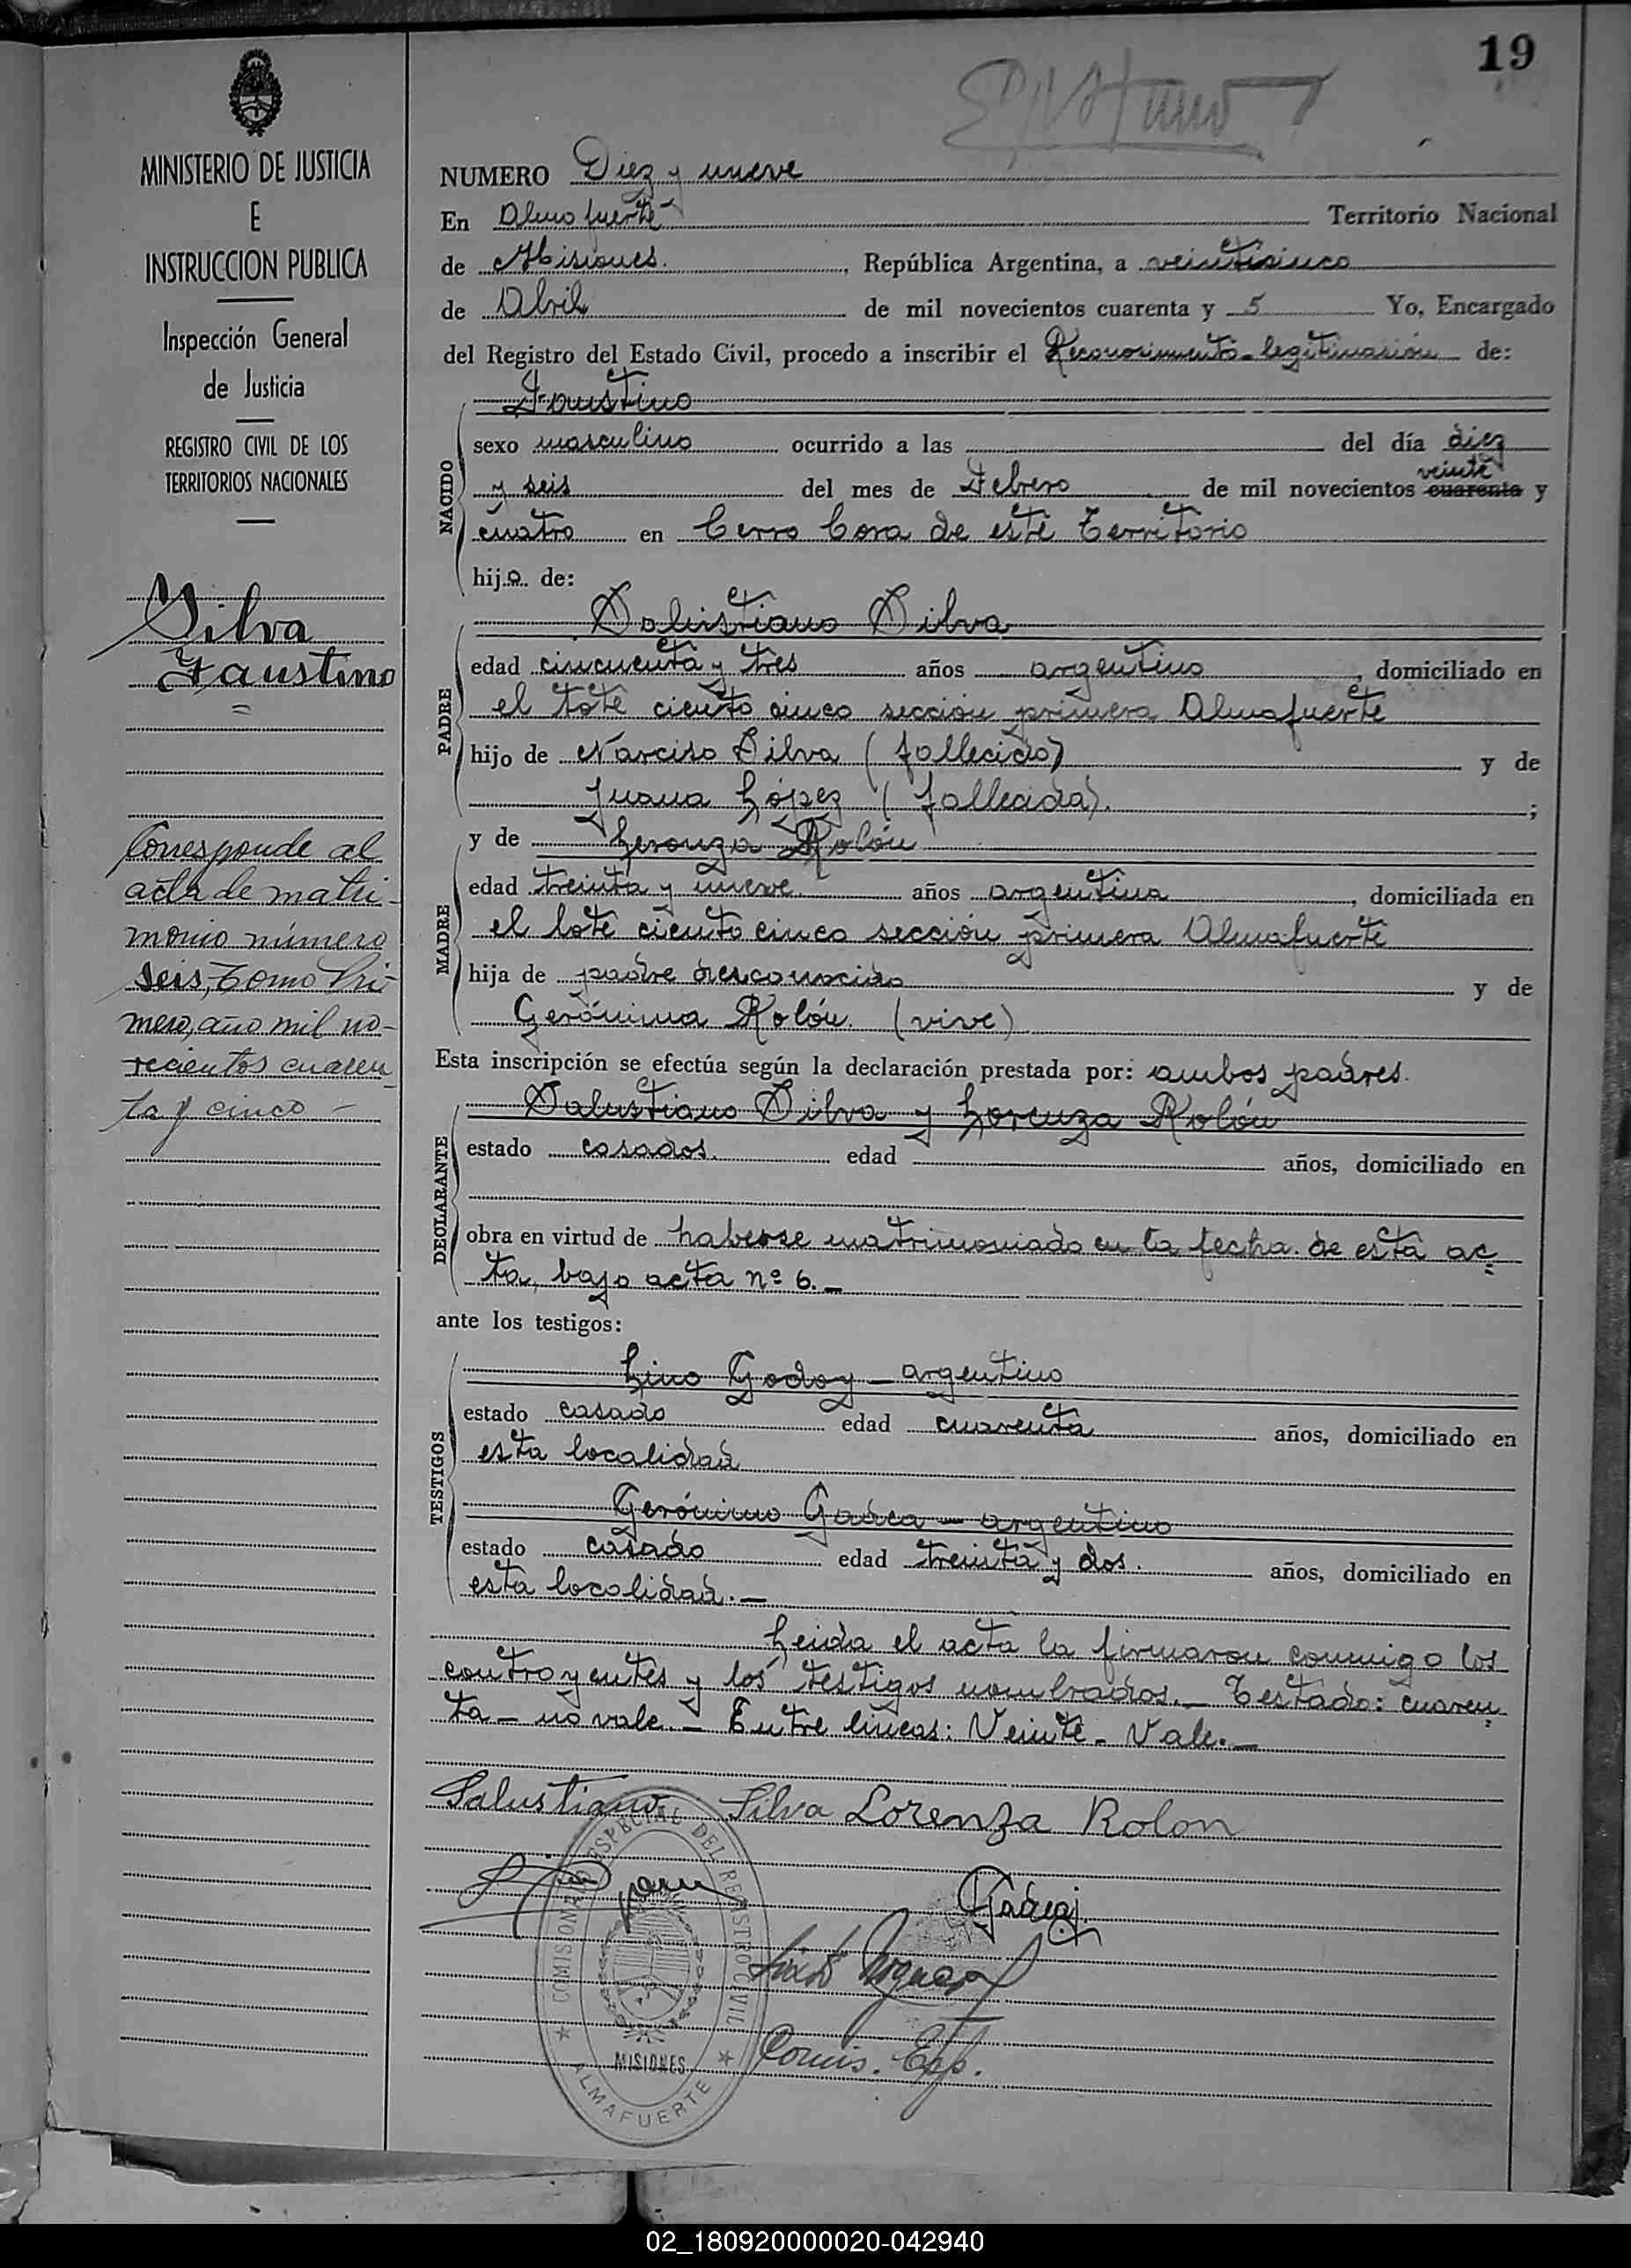 19
NUMERO Diez y nueve
En Almafuerte Territorio Nacional
de Misiones. , República Argentina, a veinticinco
de Abril de mil novecientos cuarenta y 5 Yo, Encargado
del Registro del Estado Civil, procedo a inscribir el Reconosimiento-legitimasión de:
Faustino
NACIDO
sexo masculino ocurrido a las del día diez
y seis del mes de Febrero de mil novecientos cuarenta veinte y
cuatro en Cerro Cora de este Territorio
hijo de:
PADRE
Salustiano Silva
edad cincuenta y tres años argentino , domiciliado en
el lote ciento cinco sección primera Almafuerte
hijo de Narciso Silva (fallecido) y de
Juana López (fallecida). ;
MADRE
y de Lorenza Rolón
edad treinta y nueve años argentina , domiciliada en
el lote ciento cinco sección primera Almafuerte
hija de padre desconocido y de
Gerónima Rolón. (vive)
Esta inscripción se efectúa según la declaración prestada por: ambos padres.
DECLARANTE
Salustiano Silva y Lorenza Rolón
estado casados. edad años, domiciliado en
obra en virtud de haberse matrimoniado en la fecha de esta ac=
ta, bajo acta nº 6.-
ante los testigos:
TESTIGOS
Lino Godoy - argentino
estado casado edad cuarenta años, domiciliado en
esta localidad
Gerónimo Gadea - argentino
estado casado edad treinta y dos. años, domiciliado en
esta localidad.-
Leida el acta la firmaron conmigo los
contrayentes y los testigos nombrados.- Testado: cuaren=
ta - no vale.- Entre líneas: Veinte - Vale.-
Salustiano Silva Lorenza Rolon
Gadea
Comis. Esp.
COMISIONADO ESPECIAL DEL REGISTRO CIVIL
MISIONES
ALMAFUERTE
MINISTERIO DE JUSTICIA
E
INSTRUCCION PUBLICA
Inspección General
de Justicia
REGISTRO CIVIL DE LOS
TERRITORIOS NACIONALES
Silva
Faustino
=
Corresponde al
acta de matri-
monio número
seis, Tomo Pri-
mero, año mil no-
vecientos cuaren-
ta y cinco -
02_180920000020-042940